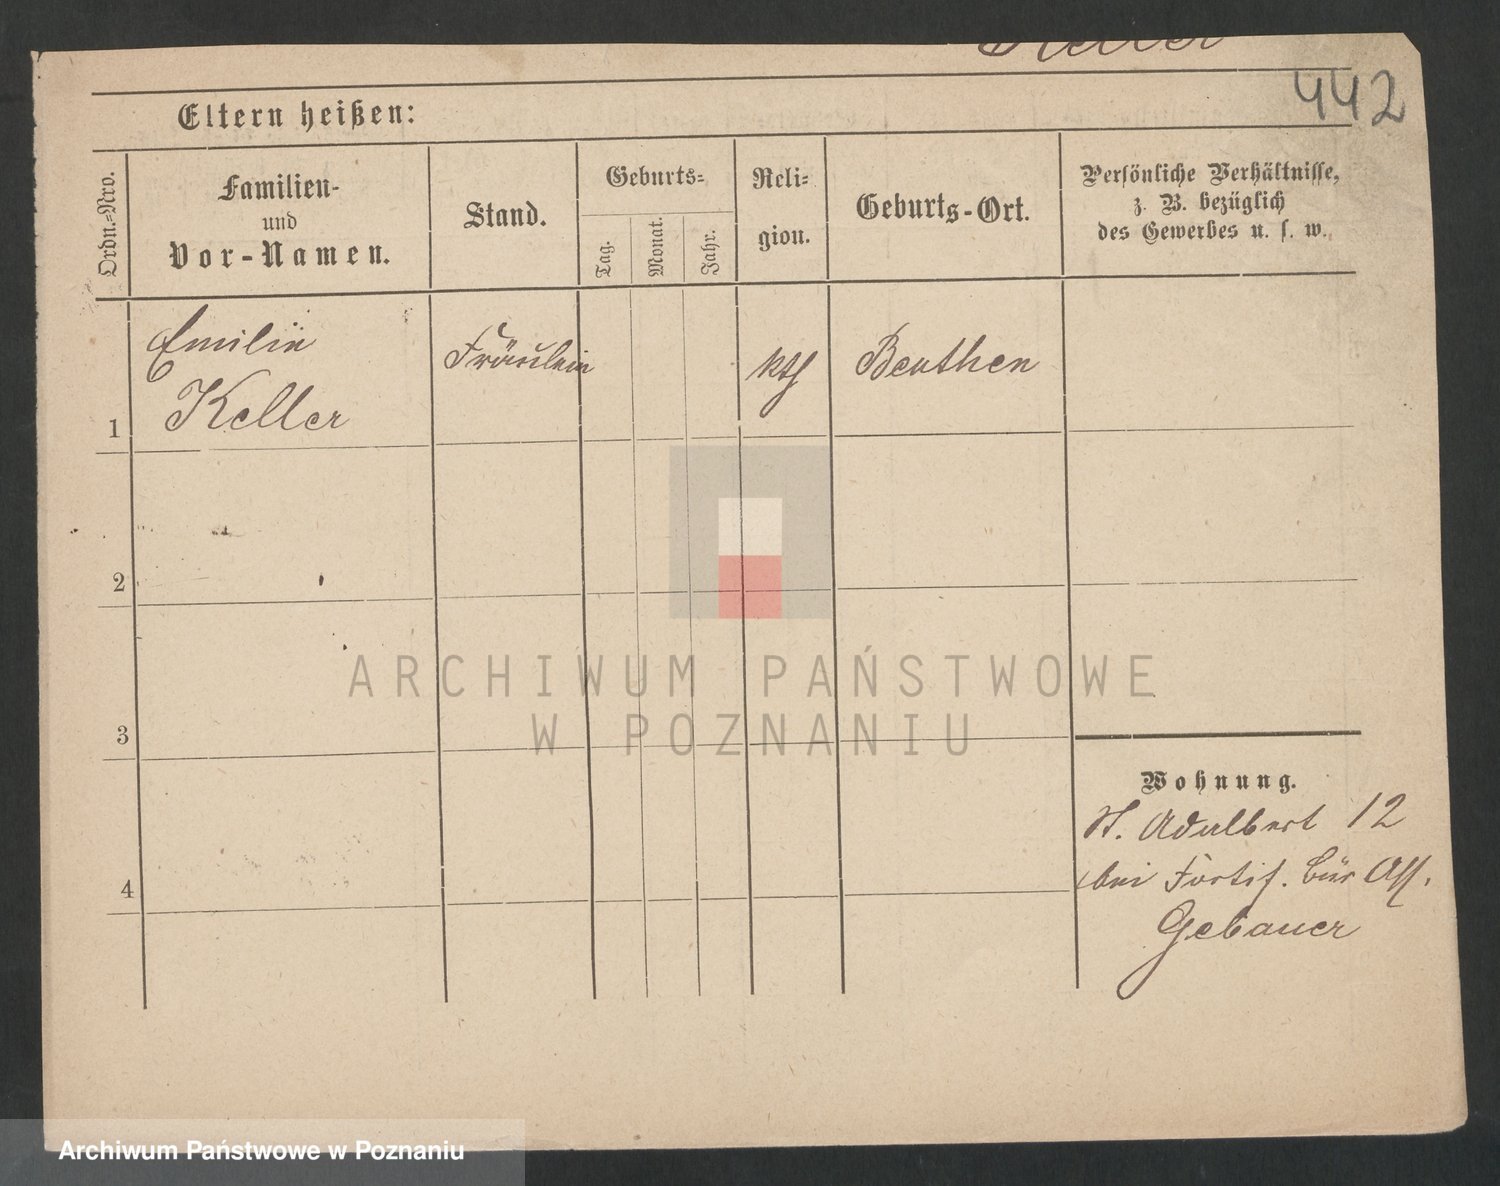 Keller
442
Eltern heißen:
Ordn.=Nro.
Familien-
und
Vor-Namen.
Stand.
Geburts=
Tag.
Monat.
Jahr.
Reli=
gion.
Geburts-Ort.
Persönliche Verhältnisse,
z. B. bezüglich
des Gewerbes u. s. w.
1
Emilie
Keller
Fräulein
kth
Beuthen
2
3
4
Wohnung.
St. Adalbert 12
bei Fortif. Bür Ass.
Gebauer
ARCHIWUM PAŃSTWOWE
W POZNANIU
Archiwum Państwowe w Poznaniu